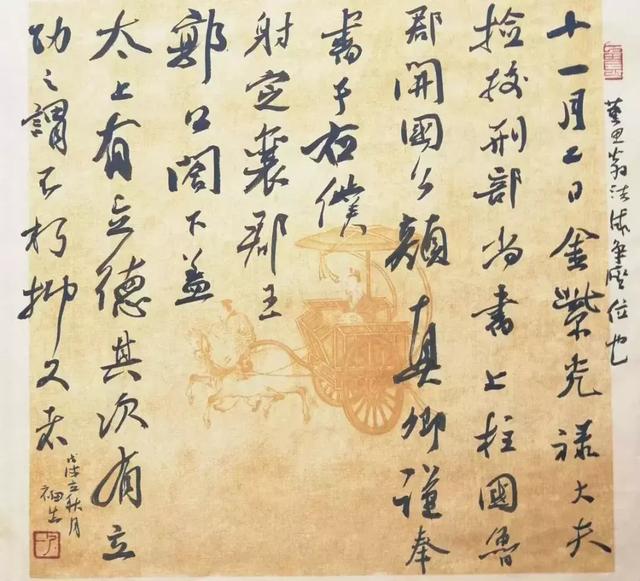 董思翁法争座位也
十一月二日金紫光禄大夫
捡校刑部尚書上柱國魯
郡開國公顏真卿謹奉
書于右僕
射定襄郡王
郭公閤下蓋
太上有立德其次有立
功之謂不朽抑又聞
戊戌立秋月
福生